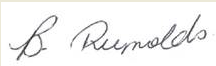 B. Reynolds